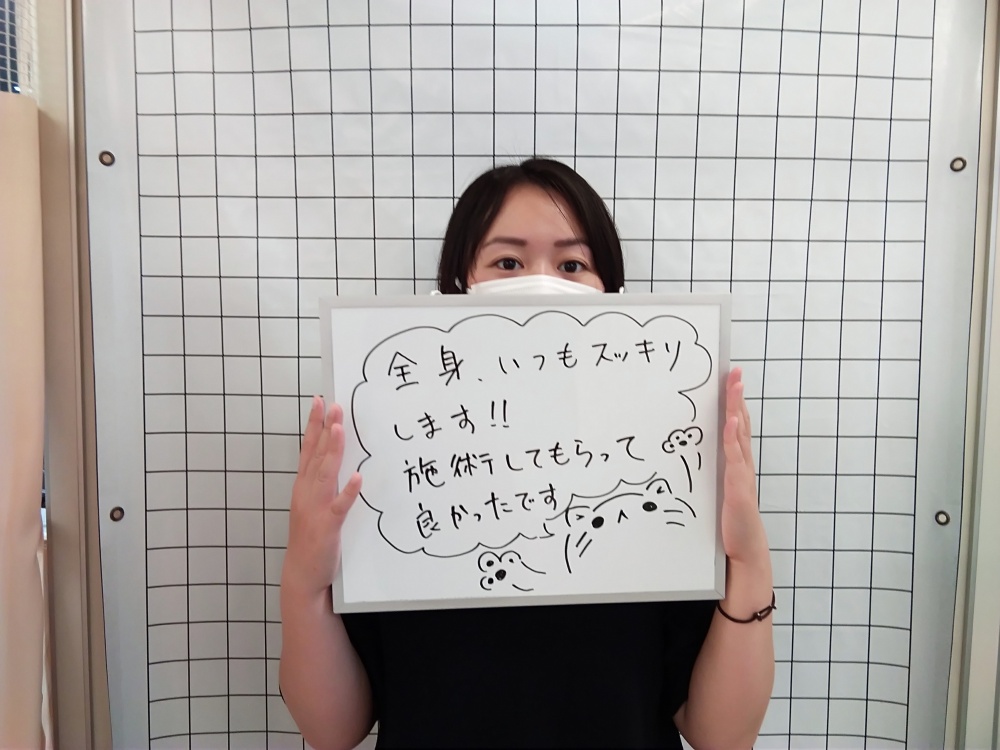 全身、いつもスッキリ
します!!
施術してもらって
良かったです